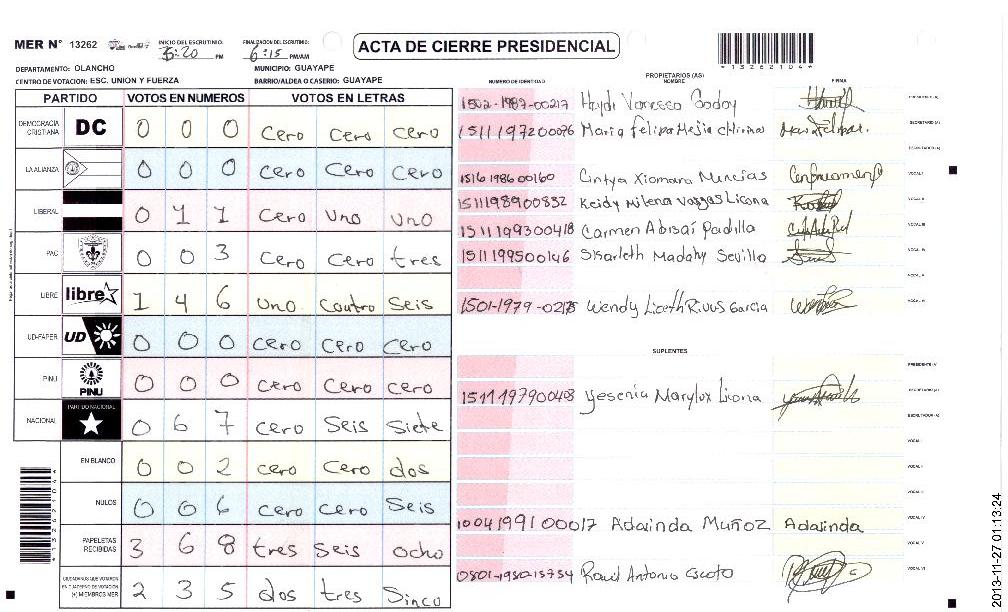 MER N° 13262
INICIO DEL ESCRUTINIO: 5:20 PM
FINALIZACION DEL ESCRUTINIO: 6:15 PM/AM
ACTA DE CIERRE PRESIDENCIAL
*13262104*
DEPARTAMENTO: OLANCHO
MUNICIPIO: GUAYAPE
CENTRO DE VOTACION: ESC. UNION Y FUERZA
BARRIO/ALDEA O CASERIO: GUAYAPE
PARTIDO VOTOS EN NUMEROS VOTOS EN LETRAS
DEMOCRACIA CRISTIANA DC 0 0 0 Cero Cero Cero
LA ALIANZA 0 0 0 Cero Cero Cero
LIBERAL 0 1 1 Cero Uno Uno
PAC 0 0 3 Cero Cero tres
LIBRE libre 1 4 6 Uno Cautro Seis
UD-FAPER UD 0 0 0 Cero Cero Cero
PINU PINU 0 0 0 Cero Cero Cero
NACIONAL PARTIDO NACIONAL 0 6 7 Cero Seis Siete
EN BLANCO 0 0 2 Cero Cero dos
NULOS 0 0 6 Cero Cero Seis
PAPELETAS RECIBIDAS 3 6 8 tres Seis Ocho
CIUDADANOS QUE VOTARON EN CUADERNO DE VOTACION (+) MIEMBROS MER 2 3 5 dos tres Sinco
NUMERO DE IDENTIDAD PROPIETARIOS (AS) NOMBRE FIRMA
1502-1987-00217 Haydi Vanessa Godoy
1511197200076 Maria Felipa Mejia
1516198600160 Cintya Xiomara
1511198900832 Keidy Milena Vargas Licona
1511199300418 Carmen Abisaí Padilla
1511199500146 Sisarleth Madahy Sevillo
1501-1979-0217 Wendy Liceth Rivus Garcia
SUPLENTES
1511197900408 Yesenia Marylux Licona
1004199100017 Adainda Muñoz Adainda
0801-1950-15754 Raul Antonio Escoto
2013-11-27 01:13:24